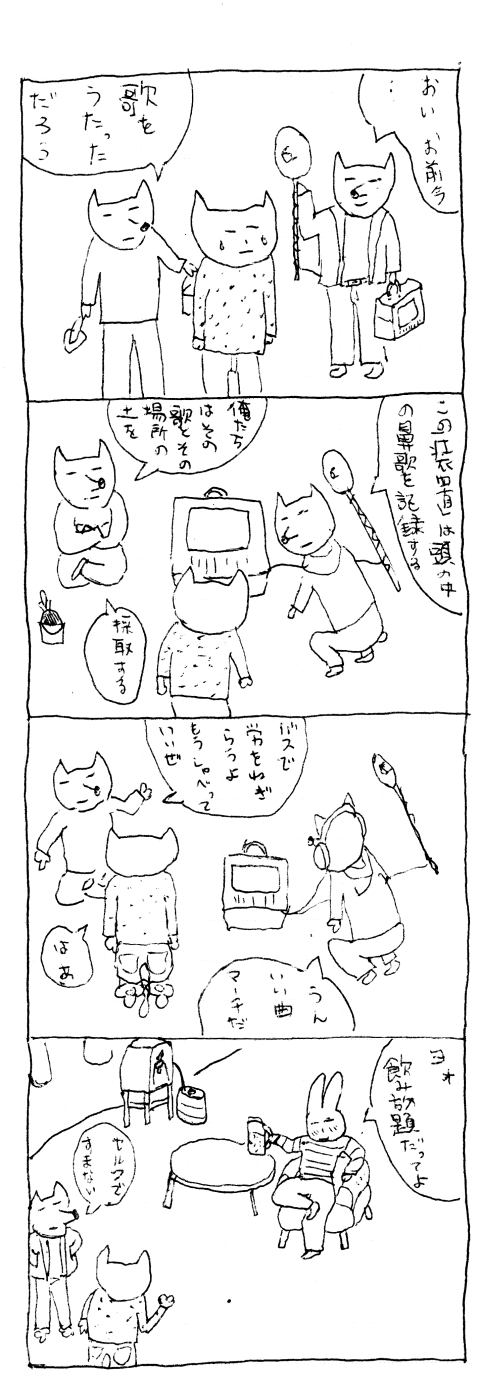 おい お前今
…
歌を
うたった
だろう
この装置は頭の中
の鼻歌を記録する
俺たち
はその
歌とその
場所の
土を
採取する
バスで
労をねぎ
らうよ
もうしゃべって
いいぜ
はあ
うん
いい曲
マーチだ
ヨォ
飲み放題だってよ
セルフで
すまない